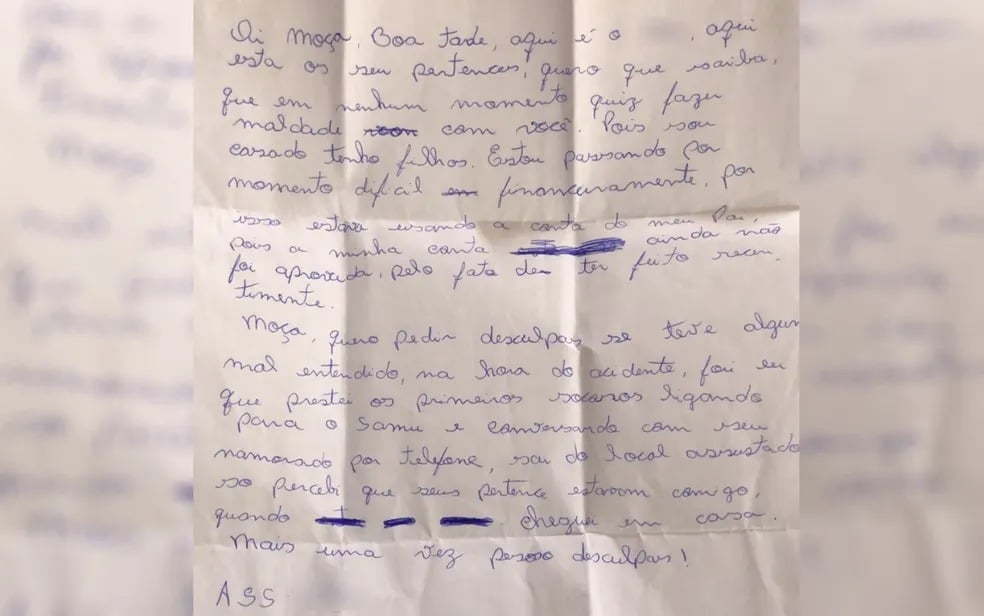 Oi moça, Boa tarde, aqui é o , aqui
esta os seu pertences, quero que saiba,
que em nenhum momento quiz fazer
maldade com você. Pois sou
casado tenho filhos. Estou passando por
momento dificil financeiramente, por
isso estava usando a conta do meu Pai,
pois a minha conta ainda não
foi aprovada, pelo fato de ter feito recen.
temente.
Moça, quero pedir desculpas se teve algum
mal entendido, na hora do acidente, foi eu
que prestei os primeiros socorros ligando
para o Samu e conversando com seu
namorado por telefone, sai do local assustado
so percebi que seus pertence estavam comigo,
quando cheguei em casa.
Mais uma vez pesso desculpas!
ASS